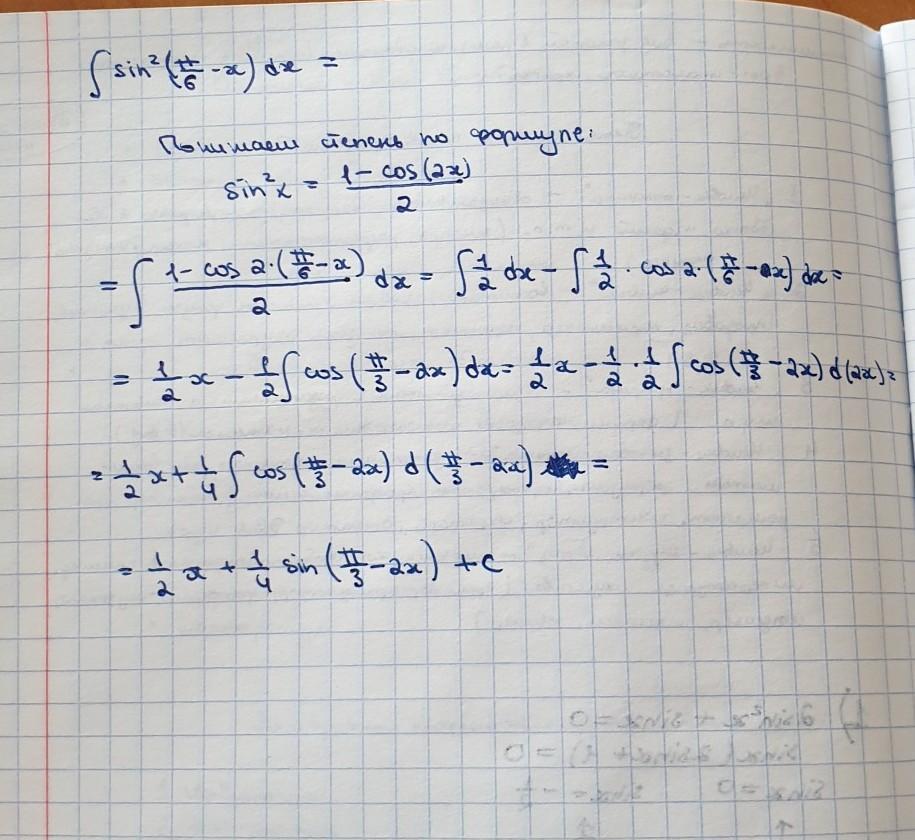 ∫ sin²(π/6 - x) dx =
Понижаем степень по формуле:
sin²x = (1 - cos(2x))/2
= ∫ (1 - cos 2·(π/6 - x))/2 dx = ∫ 1/2 dx - ∫ 1/2 · cos 2·(π/6 - x) dx =
= 1/2 x - 1/2 ∫ cos(π/3 - 2x) dx = 1/2 x - 1/2 · 1/2 ∫ cos(π/3 - 2x) d(2x) =
= 1/2 x + 1/4 ∫ cos(π/3 - 2x) d(π/3 - 2x) =
= 1/2 x + 1/4 sin(π/3 - 2x) + C